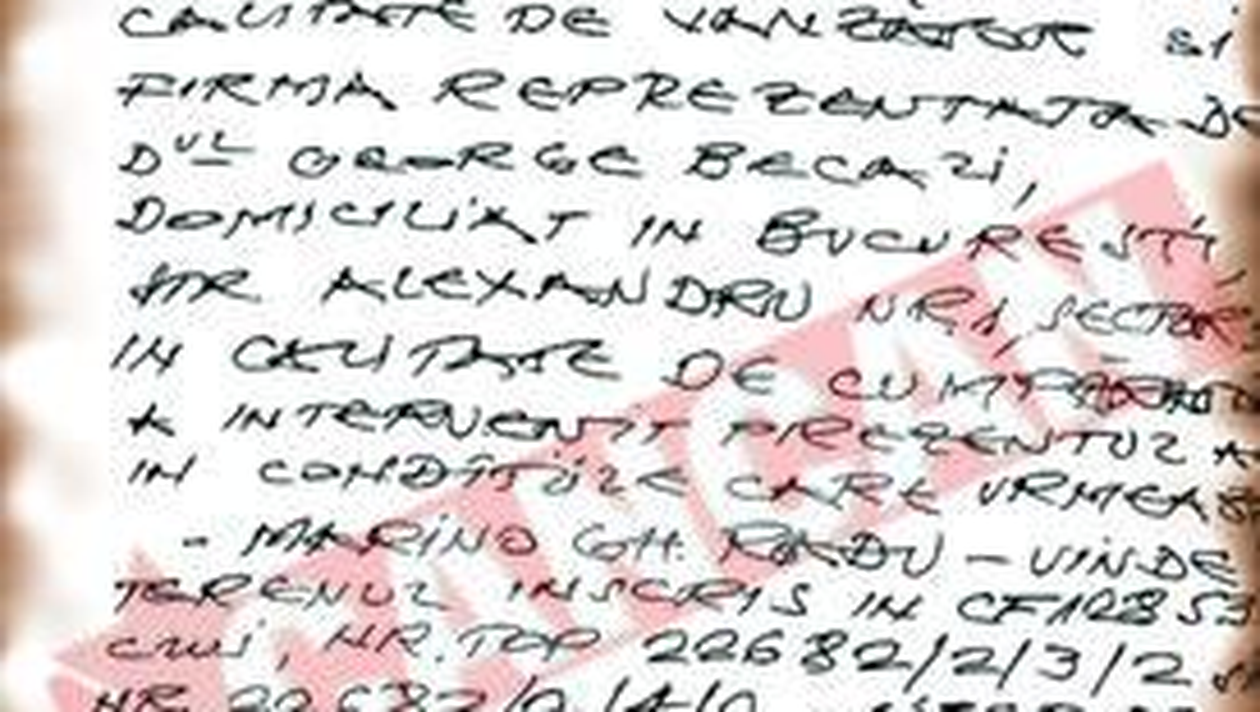 CALITATE DE VANZATOR SI
FIRMA REPREZENTATA DE
DUL GEORGE BECALI,
DOMICILIAT IN BUCURESTI,
STR ALEXANDRU NR 1, SECTOR
IN CALITATE DE CUMPARATO
A INTERVENIT PREZENTUL
IN CONDITIILE CARE URMEAZ
- MARINO GH. RADU - VINDE
TERENUL INSCRIS IN CF 12853
CLUJ, NR. TOP 22682/2/3/2
NR